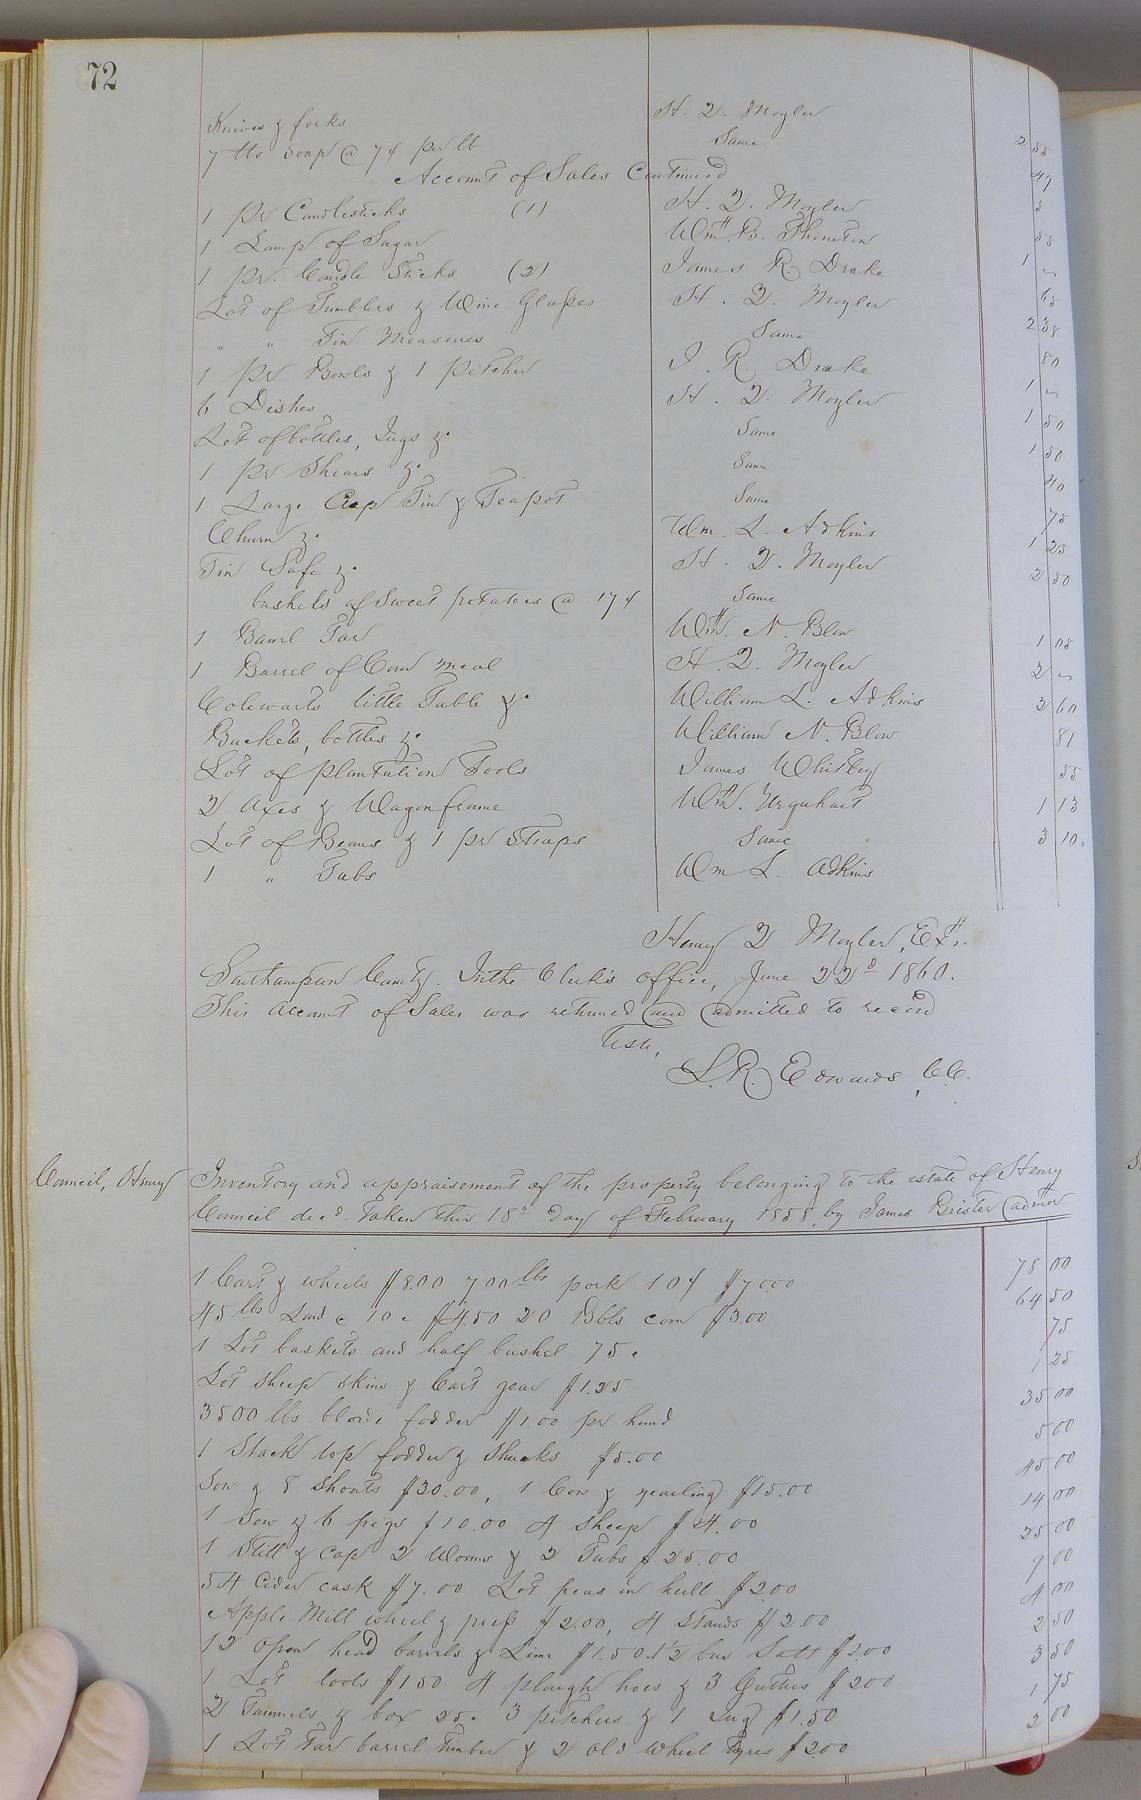 72
Knives & forks H. D. Moyler 2 55
7 lbs Soap @ 7¢ per lb Same 49
Account of Sales Continued
1 pr Candlesticks (1) H. D. Moyler 5
1 Lamp of Sugar Wm B. Thornton 55
1 pr. Candle Sticks (2) James R. Drake 1 "
Lot of Tumblers & Wine Glasses H. D. Moyler 65
" " Tin Measures Same 2 38
1 pr Bowls & 1 pitcher J. R. Drake 80
6 Dishes H. D. Moyler 1 "
Lot of bottles, Jugs &c Same 1 50
1 pr Shears &c Same 1 50
1 Large Cup Tin & Teapot Same 40
Churn &c Wm. L. Adkins 75
Tin Safe &c H. D. Moyler 1 25
bushels of Sweet potatoes @ 17¢ Same 2 50
1 Barrel Tar Wm. N. Blow 1 05
1 Barrel of Corn meal H. D. Moyler 2 "
Colewarts little Table &c William L. Adkins 2 60
Buckets, bottles &c William N. Blow 81
Lot of plantation Tools James Whitley 55
2 Axes & Wagon frame Wm. Urquhart 1 13
Lot of Beans & 1 pr Straps Same 3 10
1 " Tubs Wm L. Adkins
Henry D Moyler, Exr.
Southampton County. In the Clerk's office, June 22d 1860.
This Account of Sales was returned and admitted to record
Teste,
L. R. Edwards, C.C.
Council, Henry Inventory and appraisement of the property belonging to the estate of Henry
Council dec'd. Taken this 18th day of February 1858, by James Brister admor
1 Cart & wheels $8.00 700 lbs pork 10¢ $70.00 78 00
45 lbs Lard @ 10c $4.50 20 Bbls corn $3.00 64 50
1 Lot baskets and half bushel 75c 75
Lot sheep skins & Cart gear $1.25 1 25
3500 lbs blade fodder $1.00 pr hund 35 00
1 Stack top fodder & Shucks $5.00 5 00
Sow & 8 Shoats $30.00, 1 Cow & yearling $15.00 45 00
1 Sow & 6 pigs $10.00 4 sheep $4.00 14 00
1 Still & cap 2 Worms & 2 Tubs $25.00 25 00
54 Cider cask $7.00 Lot peas in hull $2.00 9 00
Apple Mill wheel & press $2.00, 4 Stands $2.00 4 00
12 open head barrels & Lime $1.50 1/2 bus Salt $1.00 2 50
1 Lot tools $1.50 4 plough hoes & 3 Cutters $2.00 3 50
2 Funnels & box 25c 3 pitchers & 1 Jug $1.50 1 75
1 Lot Tar barrel Timber & 2 old wheel Tyres $2.00 2 00